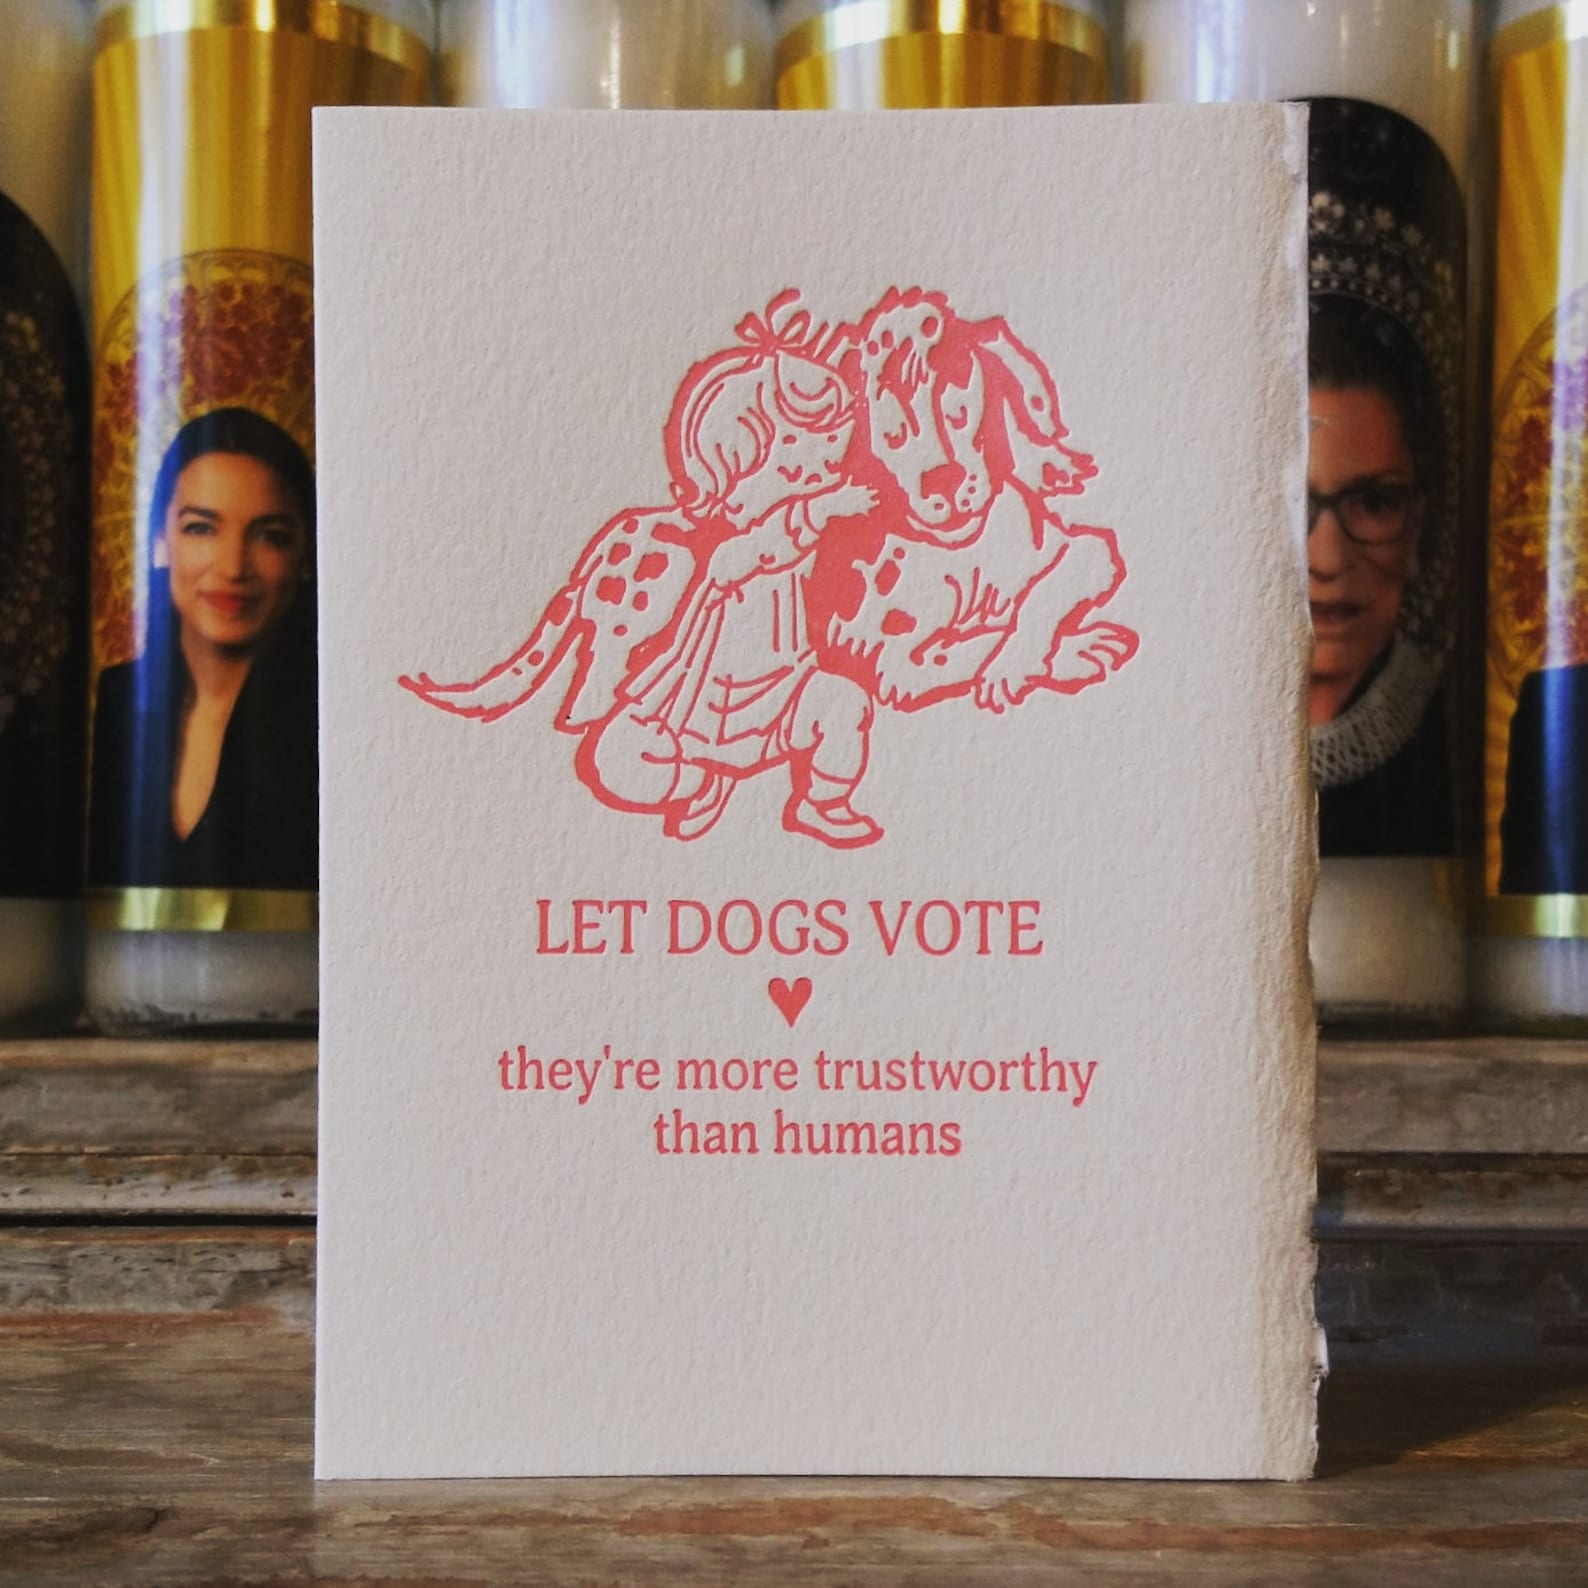 LET DOGS VOTE
they're more trustworthy
than humans